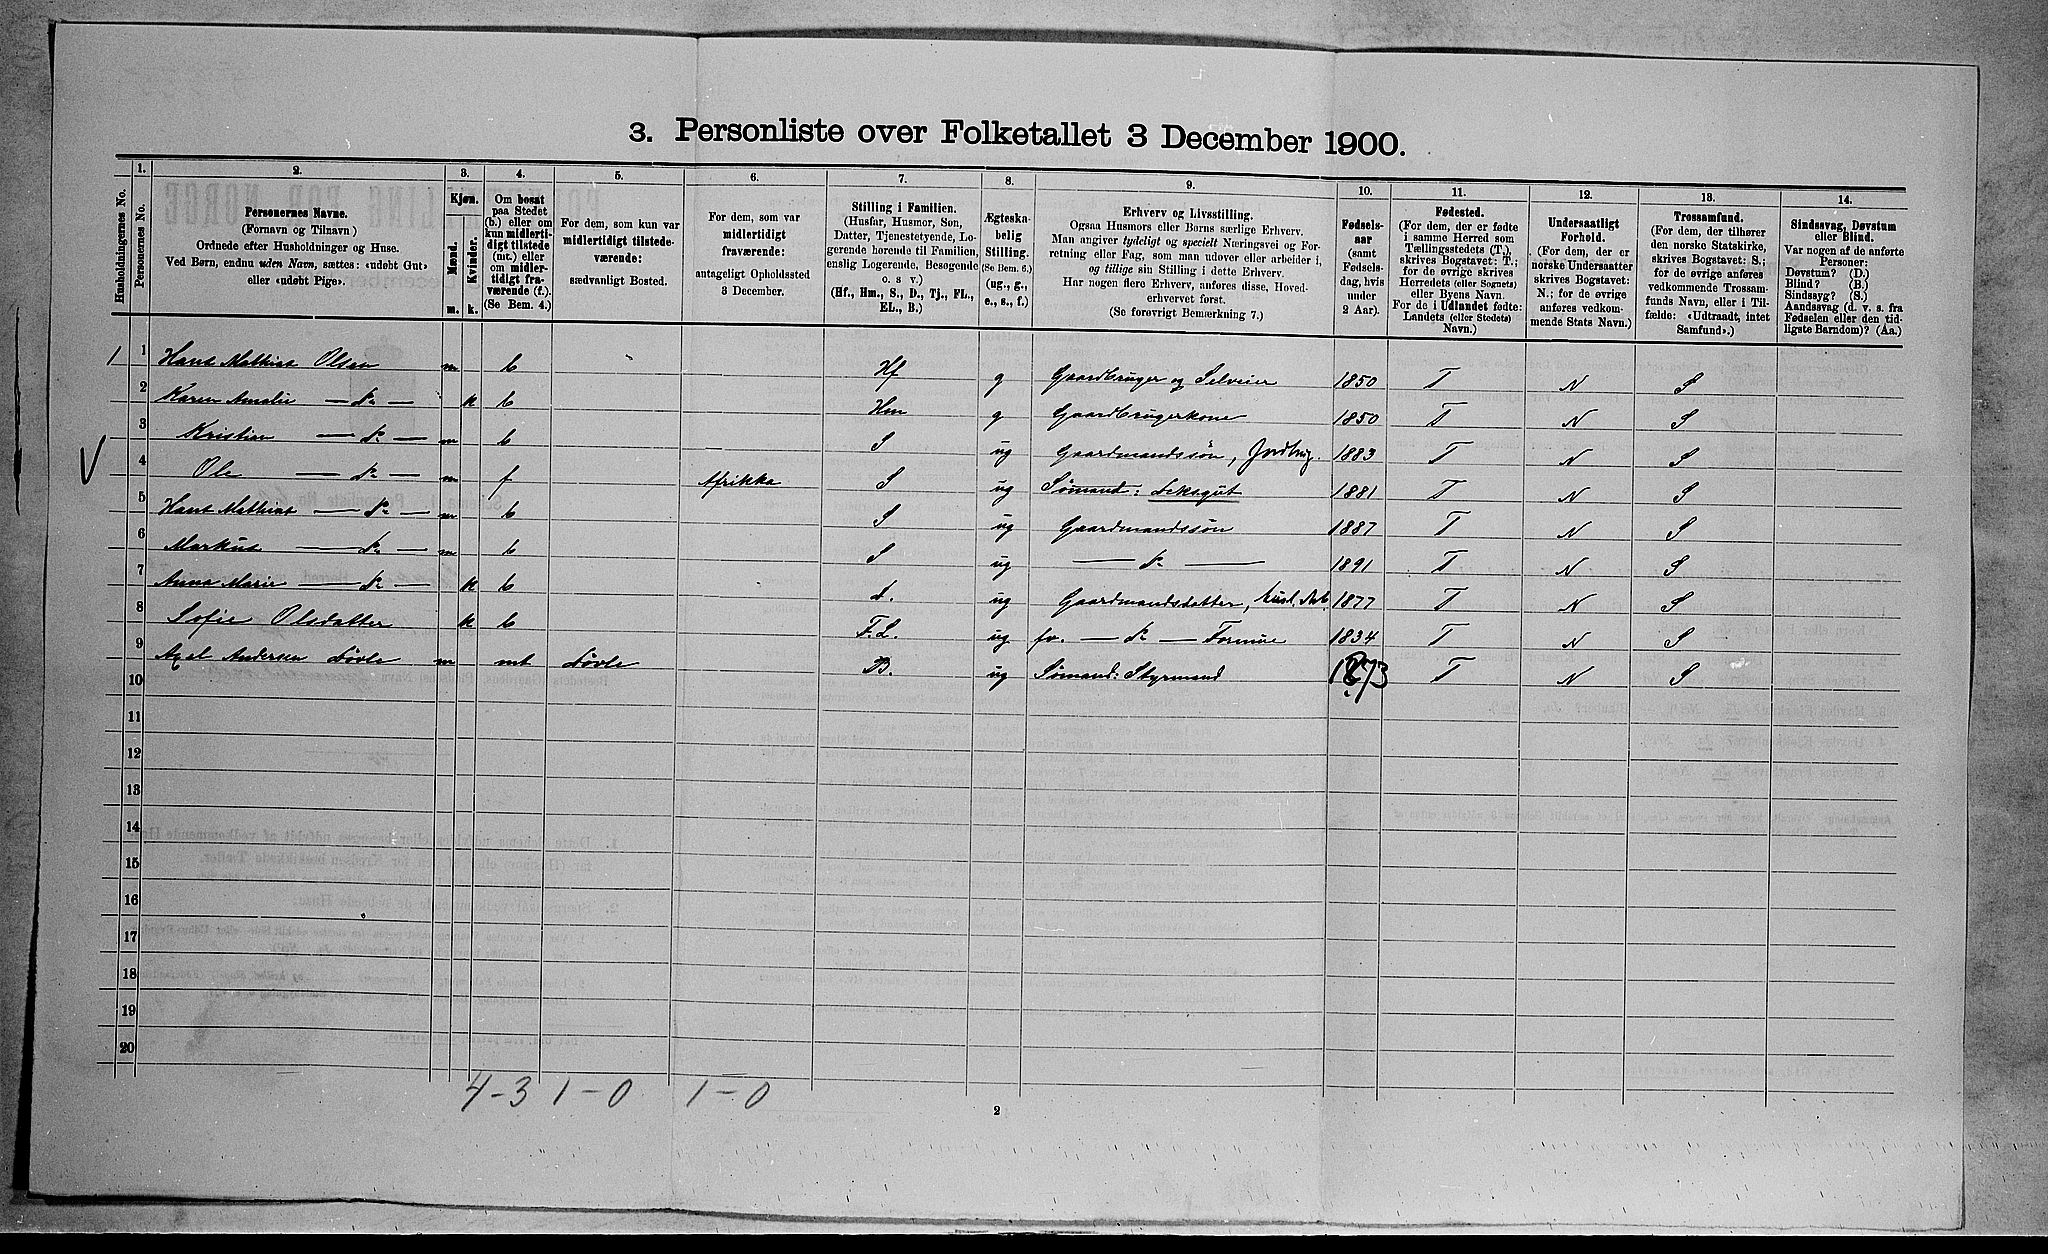 3. Personliste over Folketallet 3 December 1900.
Husholdningernes No.
1.
Personernes No.
2.
Personernes Navne.
(Fornavn og Tilnavn)
Ordnede efter Husholdninger og Huse.
Ved Børn, endnu uden Navn, sættes: «udøbt Gut»
eller «udøbt Pige».
3.
Kjøn.
Mænd.
Kvinder.
m. k.
4.
Om bosat
paa Stedet
(b.) eller om
kun midlerti-
digt tilstede
(mt.) eller
om midler-
tidigt fra-
værende (f.)
(Se Bem. 4.)
5.
For dem, som kun var
midlertidigt tilstede-
værende:
sædvanligt Bosted.
6.
For dem, som var
midlertidigt
fraværende:
antageligt Opholdssted
3 December.
7.
Stilling i Familien.
(Husfar, Husmor, Søn,
Datter, Tjenestetyende, Lo-
gerende hørende til Familien,
enslig Logerende, Besøgende
o. s v.)
(Hf., Hm., S., D., Tj., FL.,
EL., B.)
8.
Ægteska-
belig
Stilling.
(Se Bem. 6.)
(ug., g.,
e., s., f.)
9.
Erhverv og Livsstilling.
Ogsaa Husmors eller Børns særlige Erhverv.
Man angiver tydeligt og specielt Næringsvei og For-
retning eller Fag, som man udover eller arbeider i,
og tillige sin Stilling i dette Erhverv.
Har nogen flere Erhverv, anføres disse, Hoved-
erhvervet først.
(Se forøvrigt Bemærkning 7.)
10.
Fødsels-
aar
(samt
Fødsels-
dag, hvis
under
2 Aar).
11.
Fødested.
(For dem, der er fødte
i samme Herred som
Tællingsstedets (T.),
skrives Bogstavet: T.;
for de øvrige skrives
Herredets (eller Sognets)
eller Byens Navn.
For de i Udlandet fødte:
Landets (eller Stedets)
Navn.)
12.
Undersaatligt
Forhold.
(For dem, der er
norske Undersaatter
skrives Bogstavet:
N.; for de øvrige
anføres vedkom-
mende Stats Navn.)
13.
Trossamfund.
(For dem, der tilhører
den norske Statskirke,
skrives Bogstavet: S.;
for de øvrige anføres
vedkommende Trossam-
funds Navn, eller i Til-
fælde: «Udtraadt, intet
Samfund».)
14.
Sindssvag, Døvstum
eller Blind.
Var nogen af de anførte
Personer:
Døvstum? (D.)
Blind? (B.)
Sindssyg? (S.)
Aandssvag (d. v. s. fra
Fødselen eller den tid-
ligste Barndom)? (Aa.)
1 1 Hans Mathias Olsen m b Hf g Gaardbruger og Selveier 1850 T N S
2 Karen Amalie — do — k b Hm g Gaardbrugerkone 1850 T N S
3 Kristian — do — m b S ug Gaardmandssøn, Jordbrug. 1883 T N S
4 Ole — do — m f Afrikka S ug Sømand: Deksgut 1881 T N S
5 Hans Mathias — do — m b S ug Gaardmandssøn 1887 T N S
6 Markus — do — m b S ug — do — 1891 T N S
7 Anna Marie — do — k b d. ug Gaardmandsdatter, Husl. Arb. 1877 T N S
8 Sofie Olsdatter k b F.L. ug fv. — do — Formue 1834 T N S
9 Axel Andersen Døvle m mt Døvle B. ug Sømand: Styrmand 1873 T N S
10
11
12
13
14
15
16
17
18
19
20
4-3 1-0 1-0
2